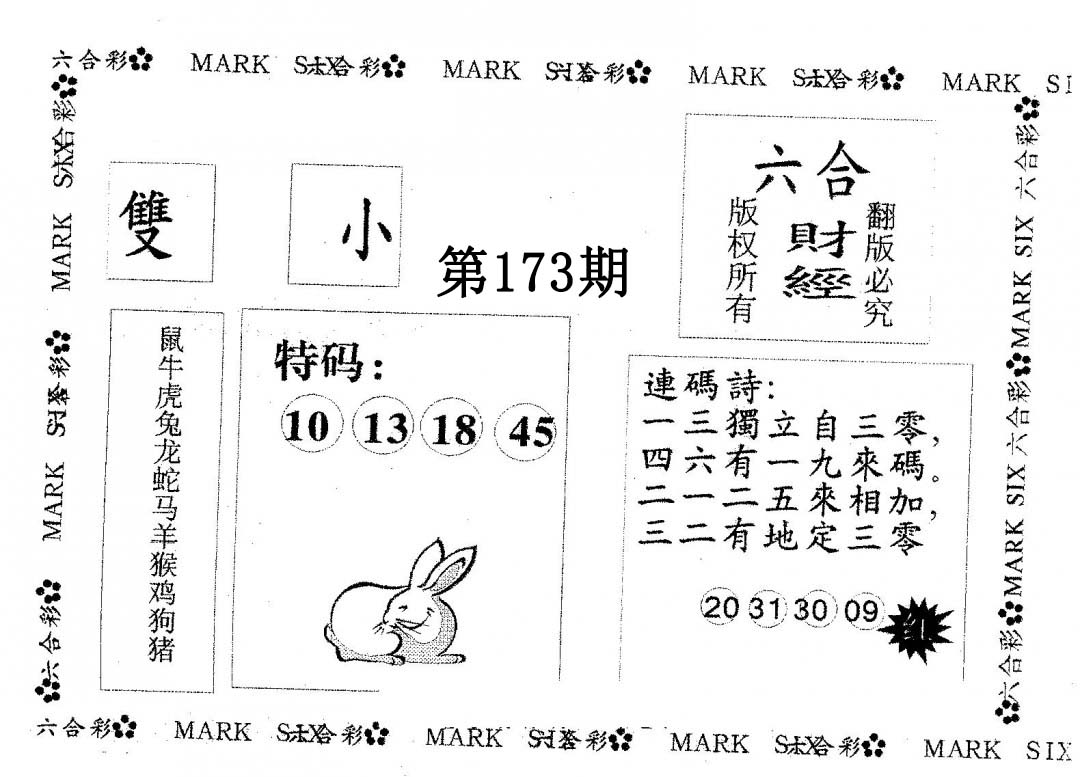 六合彩 MARK SIX六合彩 MARK SIX六合彩 MARK SIX六合彩 MARK SI
MARK SIX六合彩 MARK SIX六合彩 六合彩
六合彩 MARK SIX 六合彩 MARK SIX 六合彩
雙
小
第173期
六合
財經
版权所有
翻版必究
鼠牛虎兔龙蛇马羊猴鸡狗猪
特码：
10 13 18 45
連碼詩：
一三獨立自三零，
四六有一九來碼。
二一二五來相加，
三二有地定三零
20 31 30 09
红
六合彩 MARK SIX六合彩 MARK SIX六合彩 MARK SIX六合彩 MARK SIX